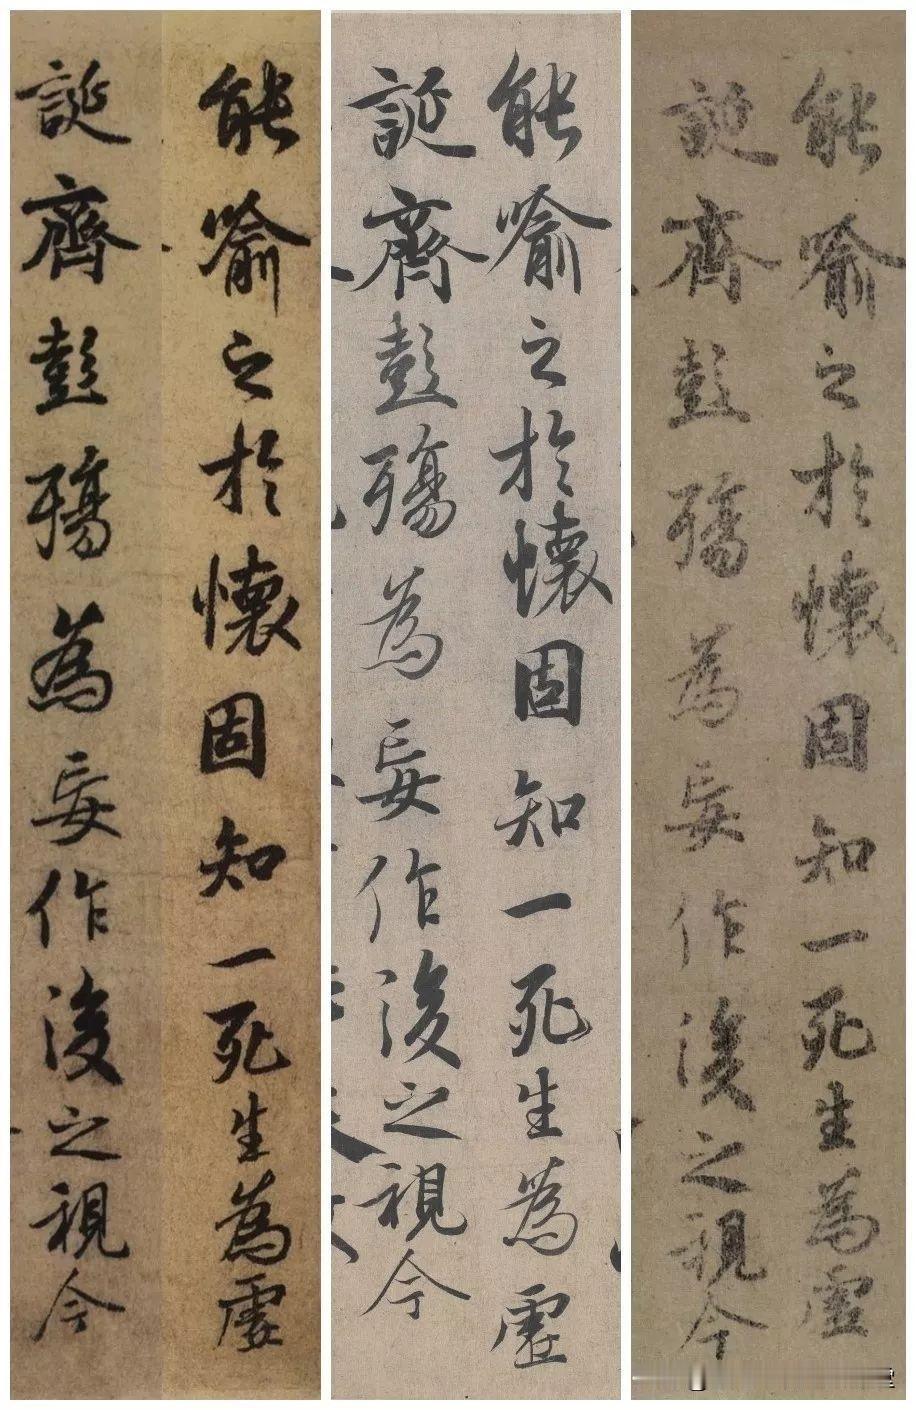 能喻之於懷固知一死生為虛
誕齊彭殤為妄作後之視今
能喻之於懷固知一死生為虛
誕齊彭殤為妄作後之視今
能喻之於懷固知一死生為虛
誕齊彭殤為妄作後之視今